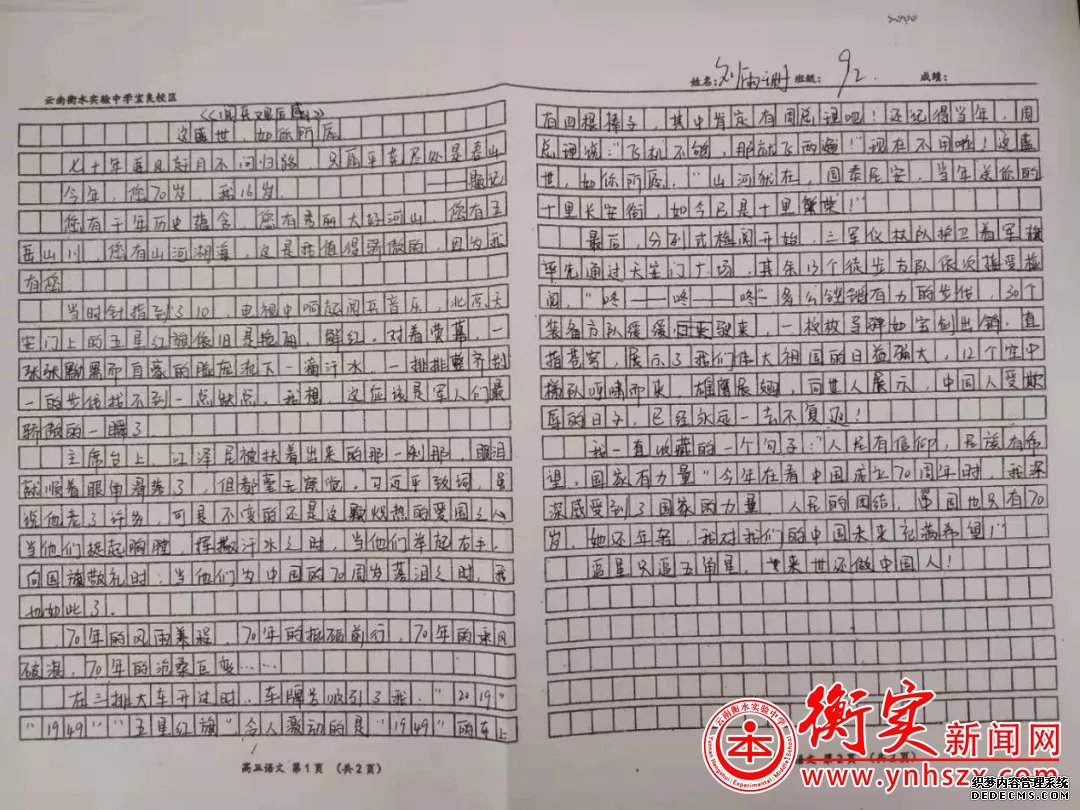 云南衡水实验中学宜良校区
《阅兵观后感》
这盛世，如你所愿
七十年追风赶月不问归路，只愿平芜尽处是春山
今年，您70岁，我16岁。——题记
您有千年历史蕴含，您有秀丽大好河山，您有五
岳山川，您有山河湖海，这是我值得骄傲的，因为我
有您。
当时针指到了10，电视中响起阅兵音乐，北京天
安门上的五星红旗依旧是艳丽，鲜红，对着荧幕，一
张张黝黑而自豪的脸庞流下一滴汗水，一排排整齐划
一的步伐找不到一点缺点，我想，这应该是军人们最
骄傲的一瞬了
主席台上，江泽民被扶着出来的那一刹那，眼泪
就顺着眼角滑落了，但都毫无察觉，习近平致词，虽
说他老了许多，可是不变的还是这颗炽热的爱国之心
当他们挺起胸膛，挥撒汗水之时，当他们举起右手，
向国旗敬礼时；当他们为中国的70周岁落泪之时，我
也如此了。
70年的风雨兼程，70年的砥砺前行，70年的乘风
破浪，70年的沧桑巨变……
在三排大车开过时，车牌号吸引了我，"2019"
"1949""五星红旗"，令人激动的是"1949"的车上
高三语文 第1页 （共2页）
姓名： 班级：92. 成绩：
有四根捧子，其中肯定有周总理吧！还记得当年，周
总理说："飞机不够，那就飞两遍！"现在不用啦！这盛
世，如你所愿，"山河犹在，国泰民安，当年送你的
十里长安街，如今已是十里繁华！"
最后，分列式检阅开始，三军仪杖队护卫着军旗
率先通过天安门广场，其余15个徒步方队依次接受检
阅，"咚——咚——咚"多么铿锵有力的步伐，30个
装备方队缓缓驶来，一枚枚导弹如宝剑出鞘，直
指苍穹，展示了我们伟大祖国的日益强大，12个空中
梯队呼啸而来，雄鹰展翅，向世人展示，中国人受欺
辱的日子，已经永远一去不复返！
我一直收藏的一个句子："人民有信仰，民族有希
望，国家有力量"今年在看中国成立70周年时，我深
深感受到了国家的力量，人民的团结，中国也只有70
岁，她还年轻，我对我们的中国未来充满希望！
追星只追五角星，来世还做中国人！
语文 第2页 （共2页）
云南衡水实验中学
衡实新闻网
www.ynhszx.com
织梦内容管理系统
DEDECMS.COM